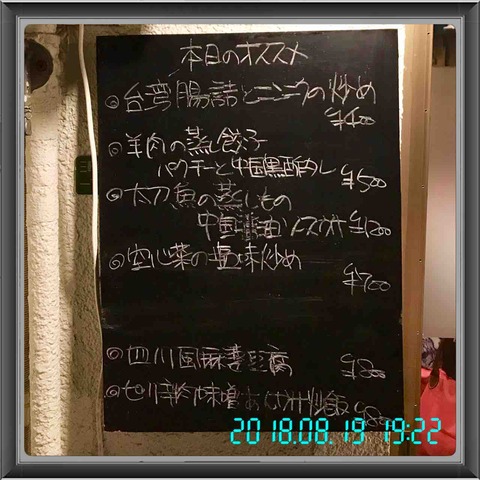 本日のオススメ
◎台湾腸詰とニンニクの炒め
¥400
◎羊肉の蒸し餃子
パクチーと中国黒酢 ¥500
◎太刀魚の蒸しもの
中国醤油 ¥1,200
◎空心菜の塩味炒め
¥700
◎四川風麻婆豆腐 ¥800
炒飯
2018.08.19 19:22